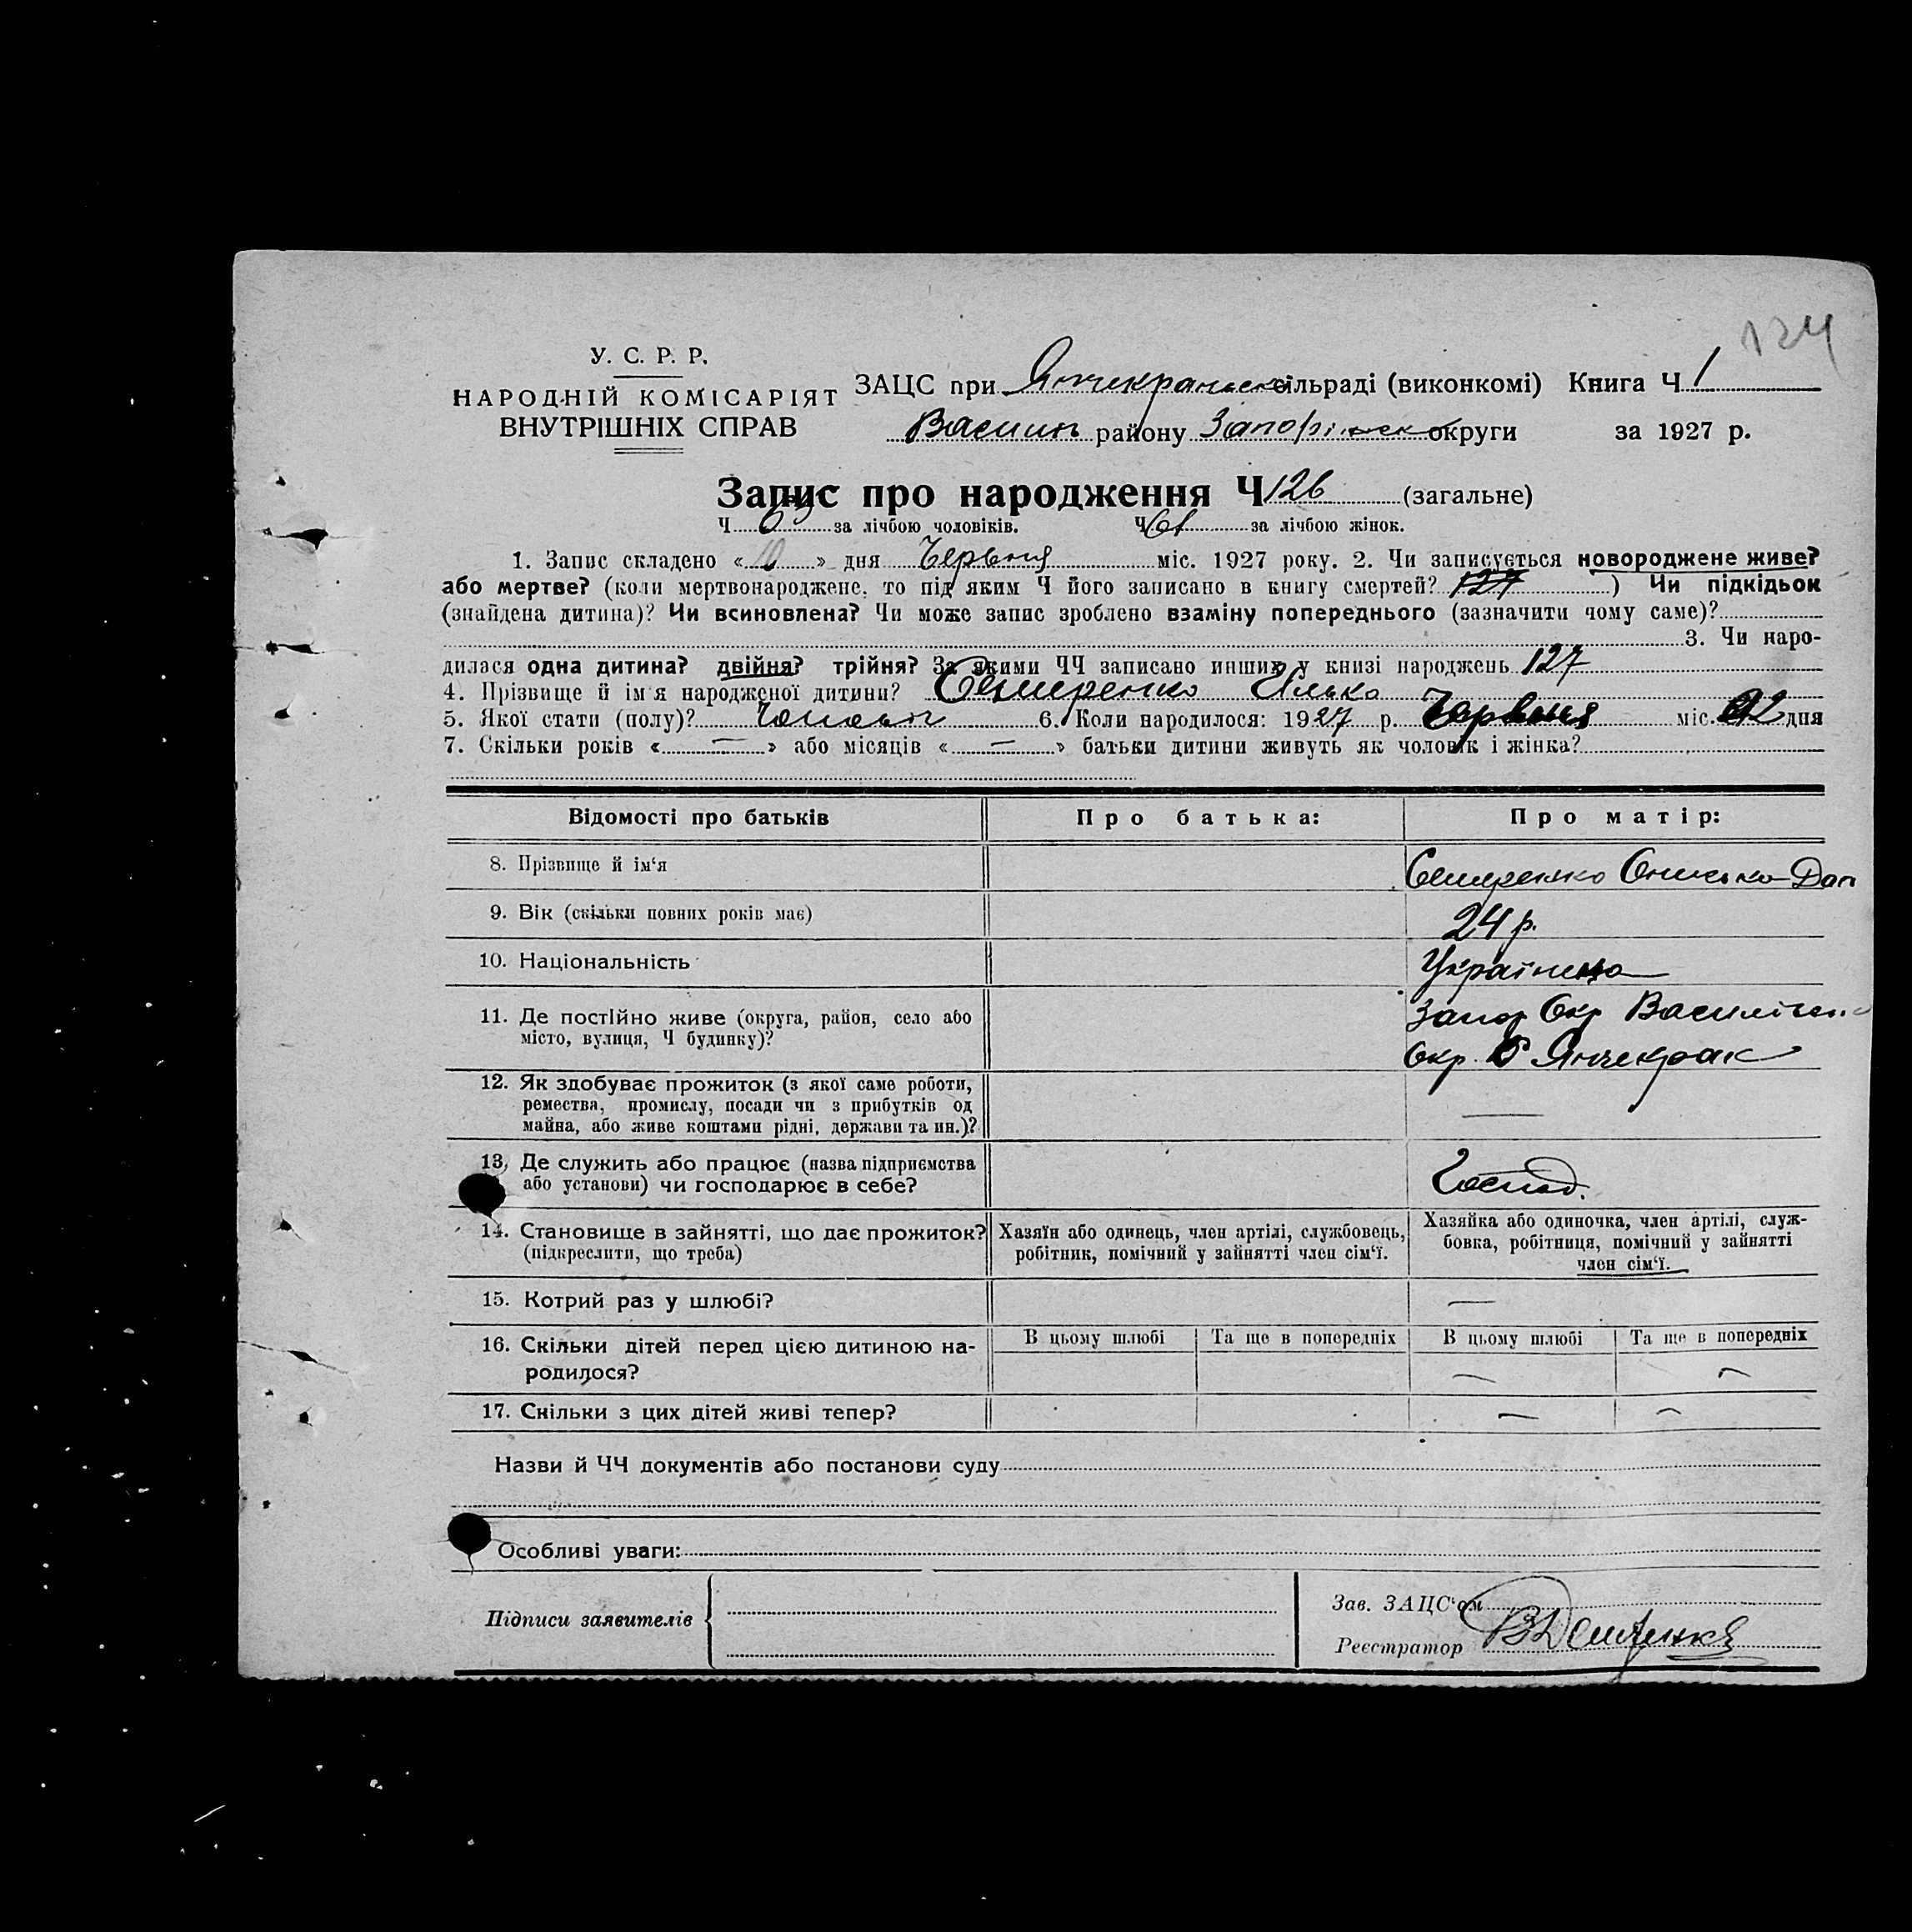 124
У. С. Р. Р.
НАРОДНІЙ КОМІСАРІЯТ
ВНУТРІШНІХ СПРАВ
ЗАЦС при Янчекрацьск сільраді (виконкомі) Книга Ч 1
Васил району Запоріжск округи за 1927 р.
Запис про народження Ч 126 (загальне)
Ч за лічбою чоловіків. Ч 61 за лічбою жінок.
1. Запис складено « 10 » дня Червня міс. 1927 року. 2. Чи записується новороджене живе?
або мертве? (коли мертвонароджене, то під яким Ч його записано в книгу смертей? 127 ) Чи підкідьок
(знайдена дитина)? Чи всиновлена? Чи може запис зроблено взаміну попереднього (зазначити чому саме)?
3. Чи наро-
дилася одна дитина? двійня? трійня? За якими ЧЧ записано инших у книзі народжень 127
4. Прізвище й ім'я народженої дитини? Семиренко Ілько
5. Якої стати (полу)? Чоловіч 6. Коли народилося: 1927 р. Червня міс. 2 дня
7. Скільки років « — » або місяців « — » батьки дитини живуть як чоловік і жінка?
Відомості про батьків Про батька: Про матір:
8. Прізвище й ім'я Семиренко Ониська Дан
9. Вік (скільки повних років має) 24 р.
10. Національність Українка
11. Де постійно живе (округа, район, село або Запор Окр Василівськ
місто, вулиця, Ч будинку)? Окр. Янчекрак
12. Як здобуває прожиток (з якої саме роботи,
ремества, промислу, посади чи з прибутків од
майна, або живе коштами рідні, держави та ин.)? —
13. Де служить або працює (назва підприємства
або установи) чи господарює в себе? Господ.
14. Становище в зайнятті, що дає прожиток?
(підкреслити, що треба)
Хазяїн або одинець, член артілі, службовець,
робітник, помічний у зайнятті член сім'ї.
Хазяйка або одиночка, член артілі, служ-
бовка, робітниця, помічний у зайнятті
член сім'ї.
15. Котрий раз у шлюбі? —
16. Скільки дітей перед цією дитиною на-
родилося?
В цьому шлюбі Та ще в попередніх В цьому шлюбі Та ще в попередніх
— —
17. Скільки з цих дітей живі тепер? — —
Назви й ЧЧ документів або постанови суду
Особливі уваги:
Підписи заявителів
Зав. ЗАЦС'ом
Реєстратор